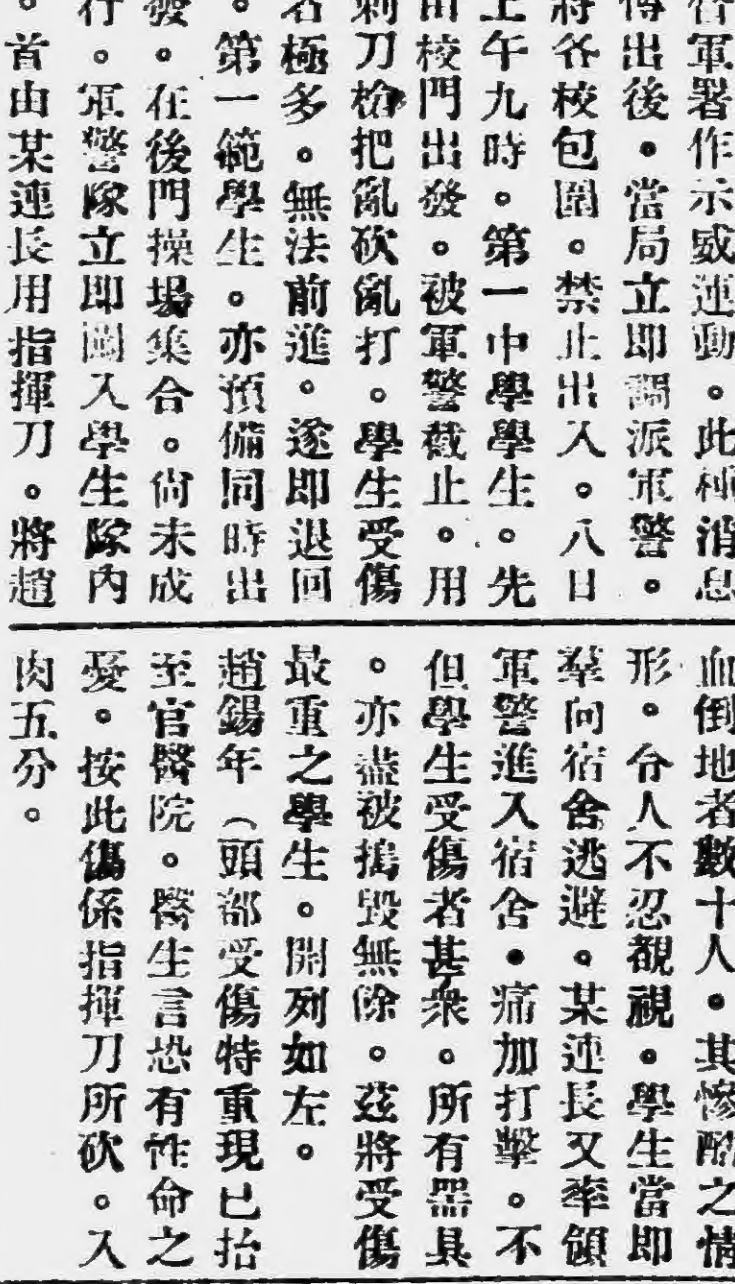 督軍署作示威運動。此種消息
傳出後。當局立即調派軍警。
將各校包圍。禁止出入。八日
上午九時。第一中學學生。先
由校門出發。被軍警截止。用
刺刀槍把亂砍亂打。學生受傷
者極多。無法前進。遂即退回
。第一範學生。亦預備同時出
發。在後門操場集合。尙未成
行。軍警隊立即闖入學生隊內
。首由某連長用指揮刀。將趙
血倒地者數十人。其慘酷之情
形。令人不忍覩視。學生當即
羣向宿舍逃避。某連長又率領
軍警進入宿舍。痛加打擊。不
但學生受傷者甚衆。所有器具
。亦盡被搗毀無餘。茲將受傷
最重之學生。開列如左。
趙錫年（頭部受傷特重現已抬
至官醫院。醫生言恐有性命之
憂。按此傷係指揮刀所砍。入
肉五分。